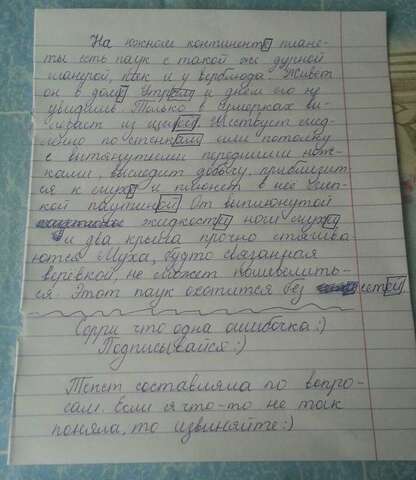 На южном континенте плане-
ты есть паук с такой же дурной
манерой, как и у верблюда. Живёт
он в доме. Утром и днём его не
увидишь. Только в сумерках вы-
лезает из щелей. Шествует мед-
ленно по стенкам или потолку
с вытянутыми передними нож-
ками, выследит добычу, приблизит-
ся к мухе и плюнет в неё лип-
кой паутиной. От выплюнутой
жидкости ноги мухи
и два крыла прочно стягива-
ются. Муха, будто связанная
верёвкой, не может пошевелить-
ся. Этот паук охотится без сетей.
Сорри что одна ошибочка:)
Подписывайся:)
Текст составляла по вопро-
сам. Если я что-то не так
поняла, то извиняйте:)